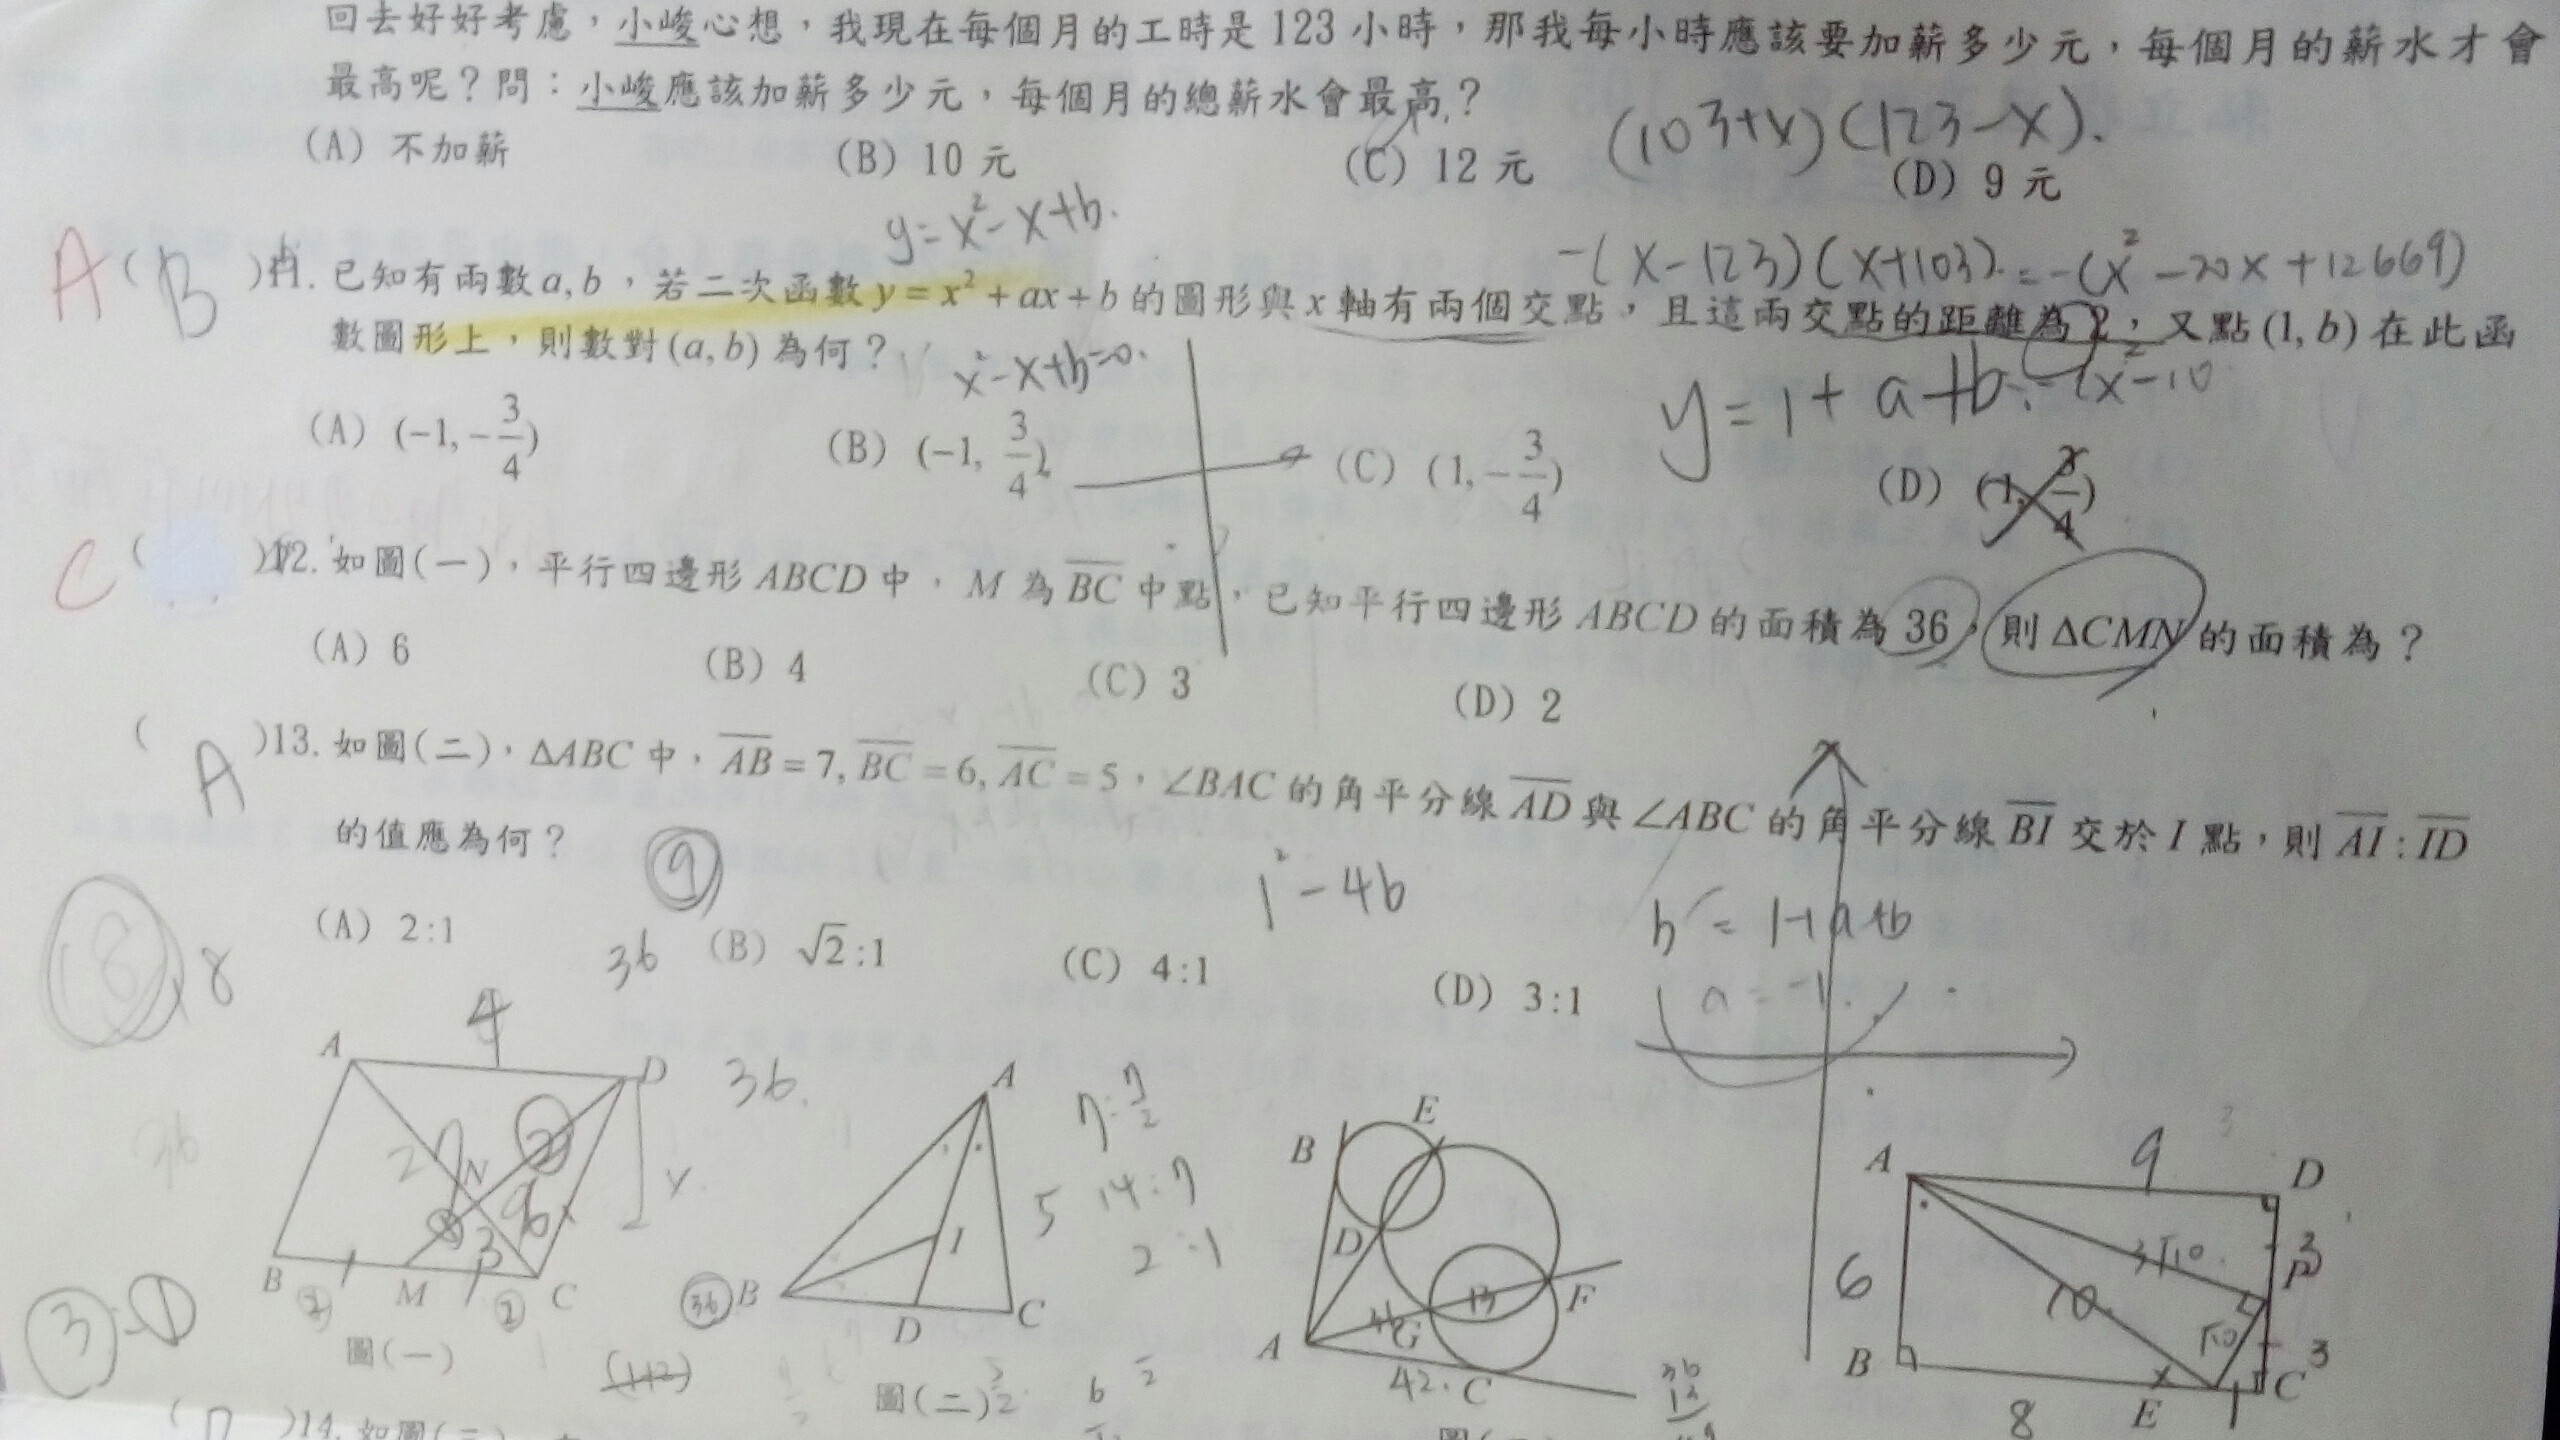 回去好好考慮，小峻心想，我現在每個月的工時是123小時，那我每小時應該要加薪多少元，每個月的薪水才會
最高呢？問：小峻應該加薪多少元，每個月的總薪水會最高？
(103+x)(123-x).
(A) 不加薪 (B) 10 元 (C) 12 元 (D) 9 元
y=x²-x+b.
-(x-123)(x+103).=-(x²-20x+12669)
A ( B )11. 已知有兩數a,b，若二次函數y=x²+ax+b的圖形與x軸有兩個交點，且這兩交點的距離為2，又點(1,b)在此函
數圖形上，則數對(a,b)為何？
x²-x+b=0.
y=1+a+b.
-(x²-10
(A) (-1,-3/4) (B) (-1, 3/4) (C) (1,-3/4) (D) (1, 3/4)
C ( )12. 如圖(一)，平行四邊形ABCD中，M為BC中點，已知平行四邊形ABCD的面積為36，則ΔCMN的面積為？
(A) 6 (B) 4 (C) 3 (D) 2
( A )13. 如圖(二)，ΔABC中，AB=7, BC=6, AC=5，∠BAC的角平分線AD與∠ABC的角平分線BI交於I點，則AI:ID
的值應為何？
9
1²-4b
b=1+a+b
a=-1.
(A) 2:1 (B) √2:1 (C) 4:1 (D) 3:1
36
18
8
4
A D B M C N
2 2 3 6
36
圖(一)
3 1
(1+2)
A B D C I
5
7:7/2
14:7
2:1
36
圖(二)
A B C D E F G
13
42.
36
13
A B C D E P
9
6
3√10
10
√10
3
3
8
1
( D )14. 如圖(三)，